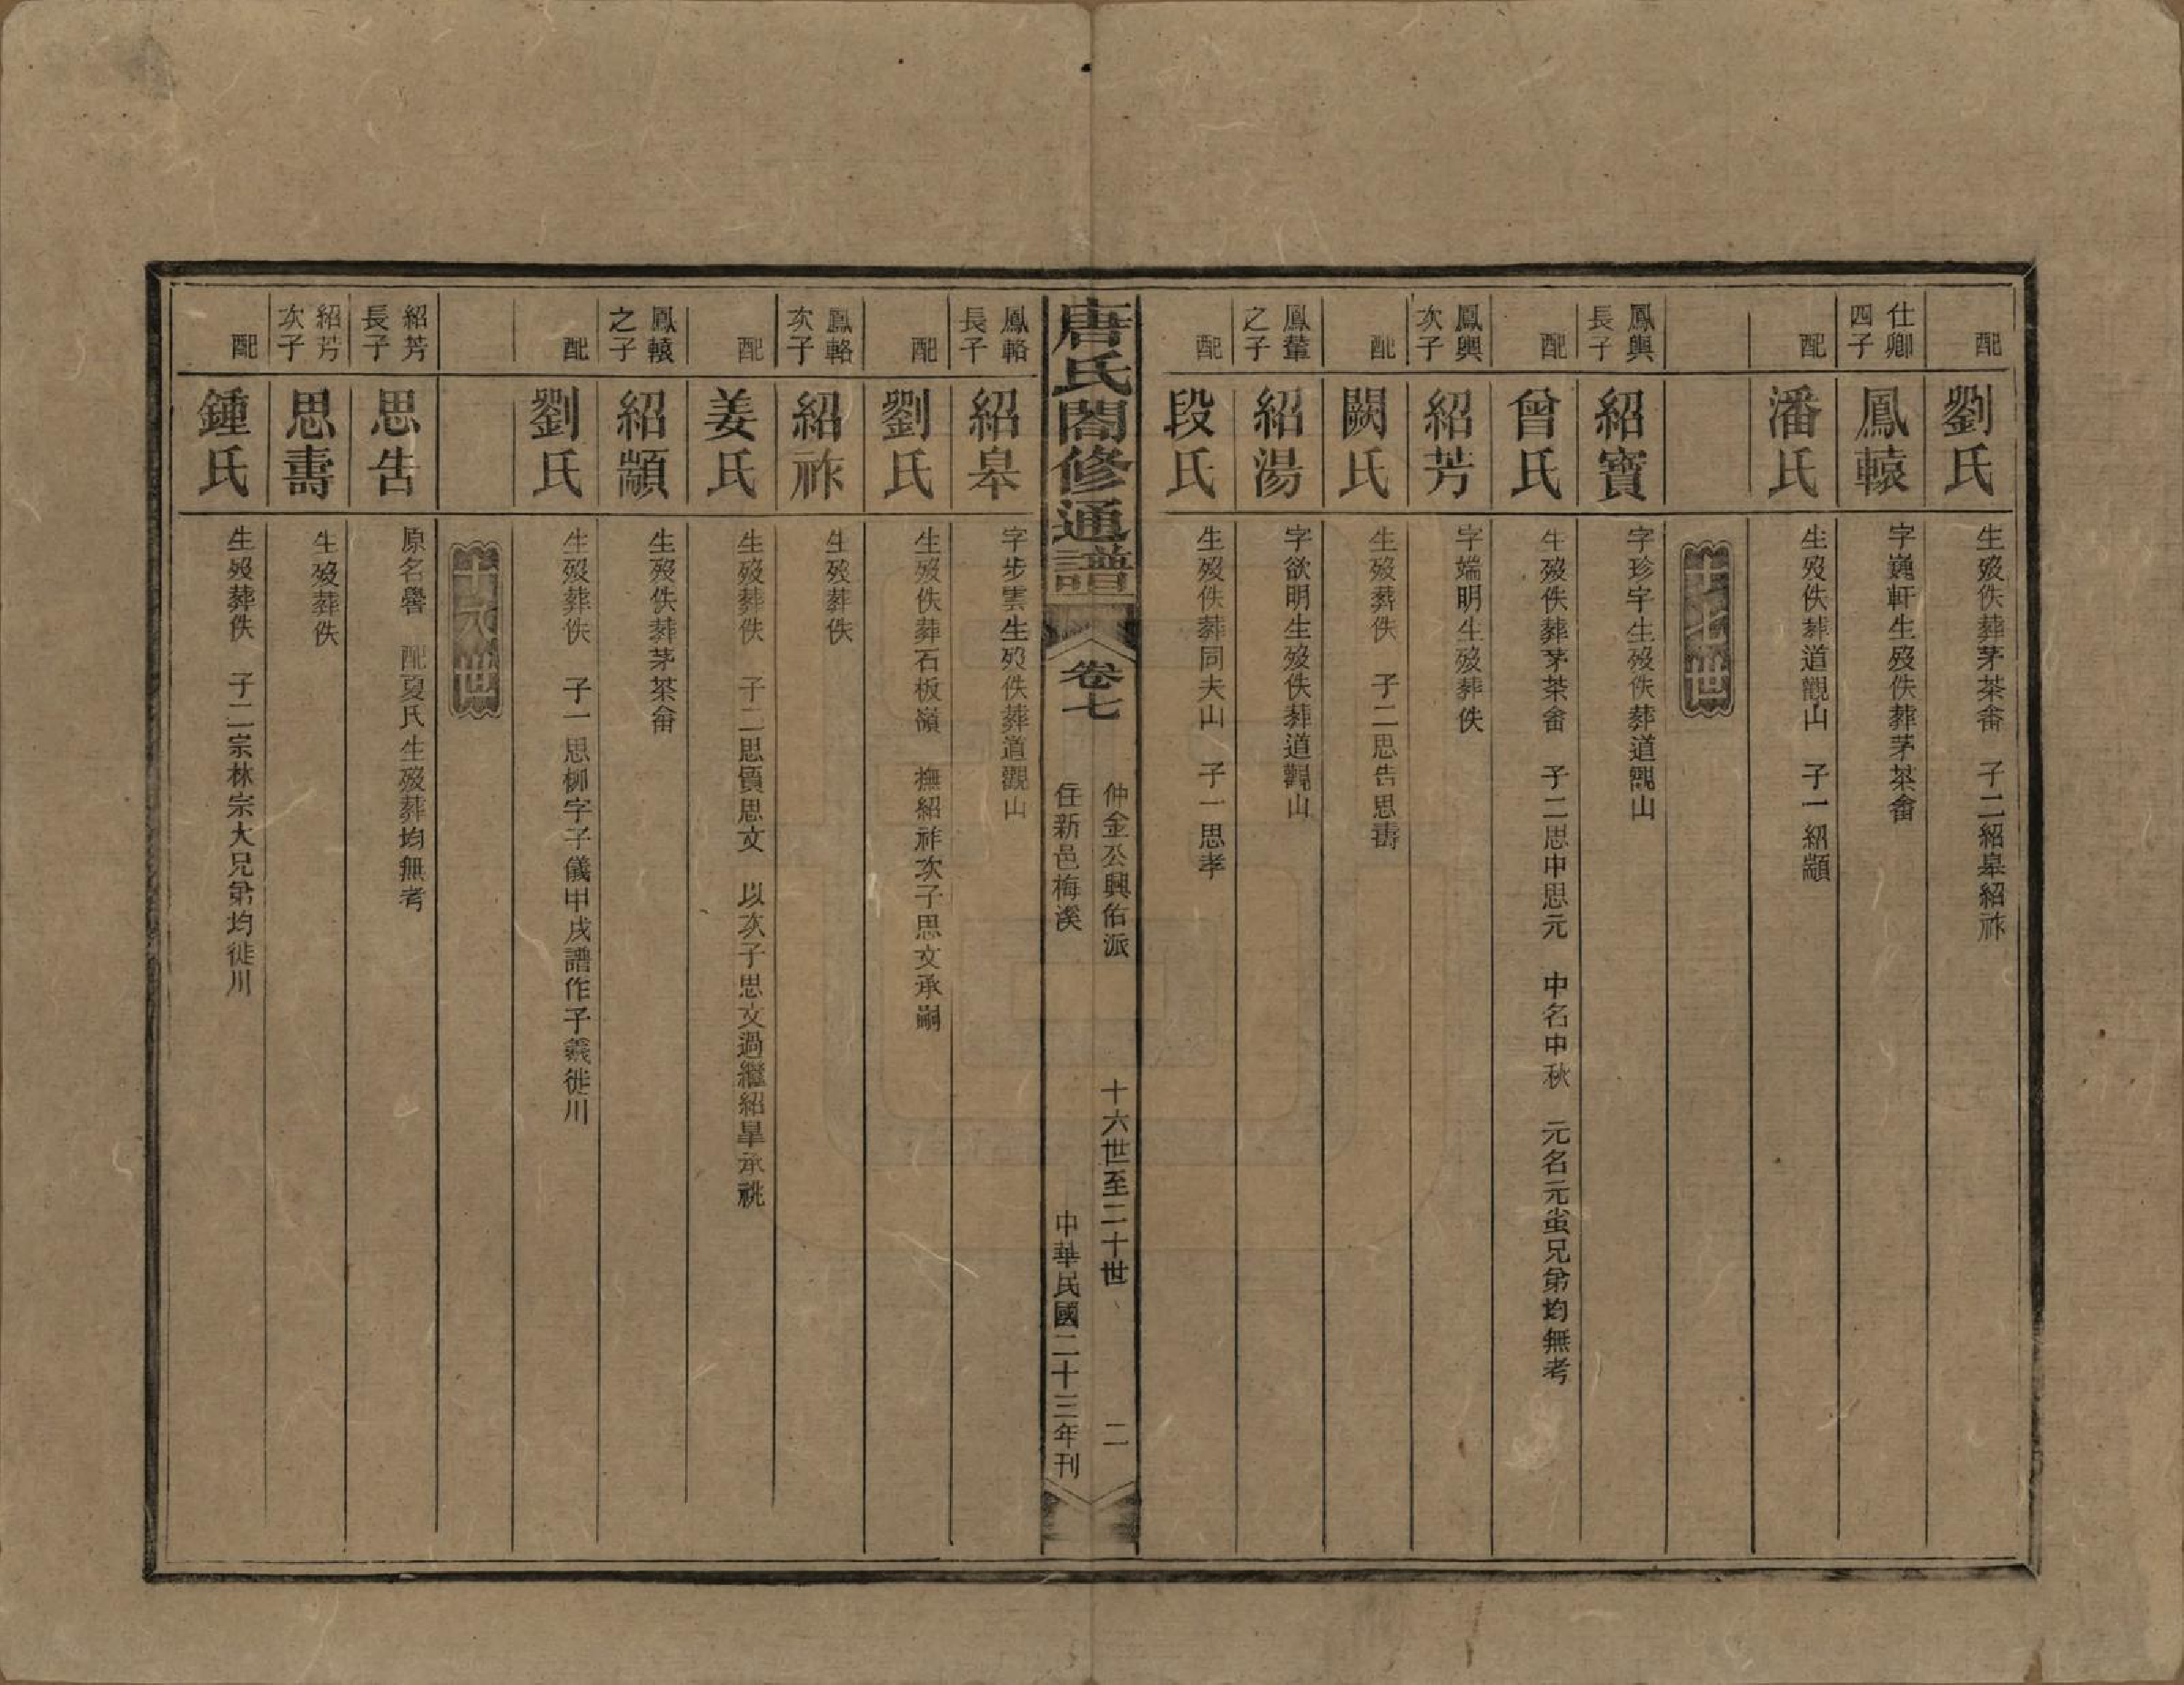 配 劉氏 生歿佚葬茅茶畬 子二紹皋紹祚
仕卿四子 鳳轅 字巍軒生歿佚葬茅茶畬
配 潘氏 生歿佚葬道觀山 子一紹顓
十七世
鳳輿長子 紹寶 字珍字生歿佚葬道觀山
配 曾氏 生歿佚葬茅茶畬 子二思中思元 中名中秋 元名元蚩兄弟均無考
鳳輿次子 紹芳 字端明生歿葬佚
配 闕氏 生歿葬佚 子二思告思壽
鳳輦之子 紹湯 字欲明生歿佚葬道觀山
配 段氏 生歿佚葬同夫山 子一思孝
唐氏閤修通譜 卷七
仲金公興佑派 十六世至二十世 二
任新邑梅溪 中華民國二十三年刊
鳳輅長子 紹皋 字步雲生歿佚葬道觀山
配 劉氏 生歿佚葬石板嶺 撫紹祚次子思文承嗣
鳳輅次子 紹祚 生歿葬佚
配 姜氏 生歿葬佚 子二思質思文 以次子思文過繼紹皋承祧
鳳轅之子 紹顓 生歿佚葬茅茶畬
配 劉氏 生歿葬佚 子一思柳字子儀甲戌譜作子義徙川
十八世
紹芳長子 思告 原名譽 配夏氏生歿葬均無考
紹芳次子 思壽 生歿葬佚
配 鍾氏 生歿葬佚 子二宗林宗大兄弟均徙川